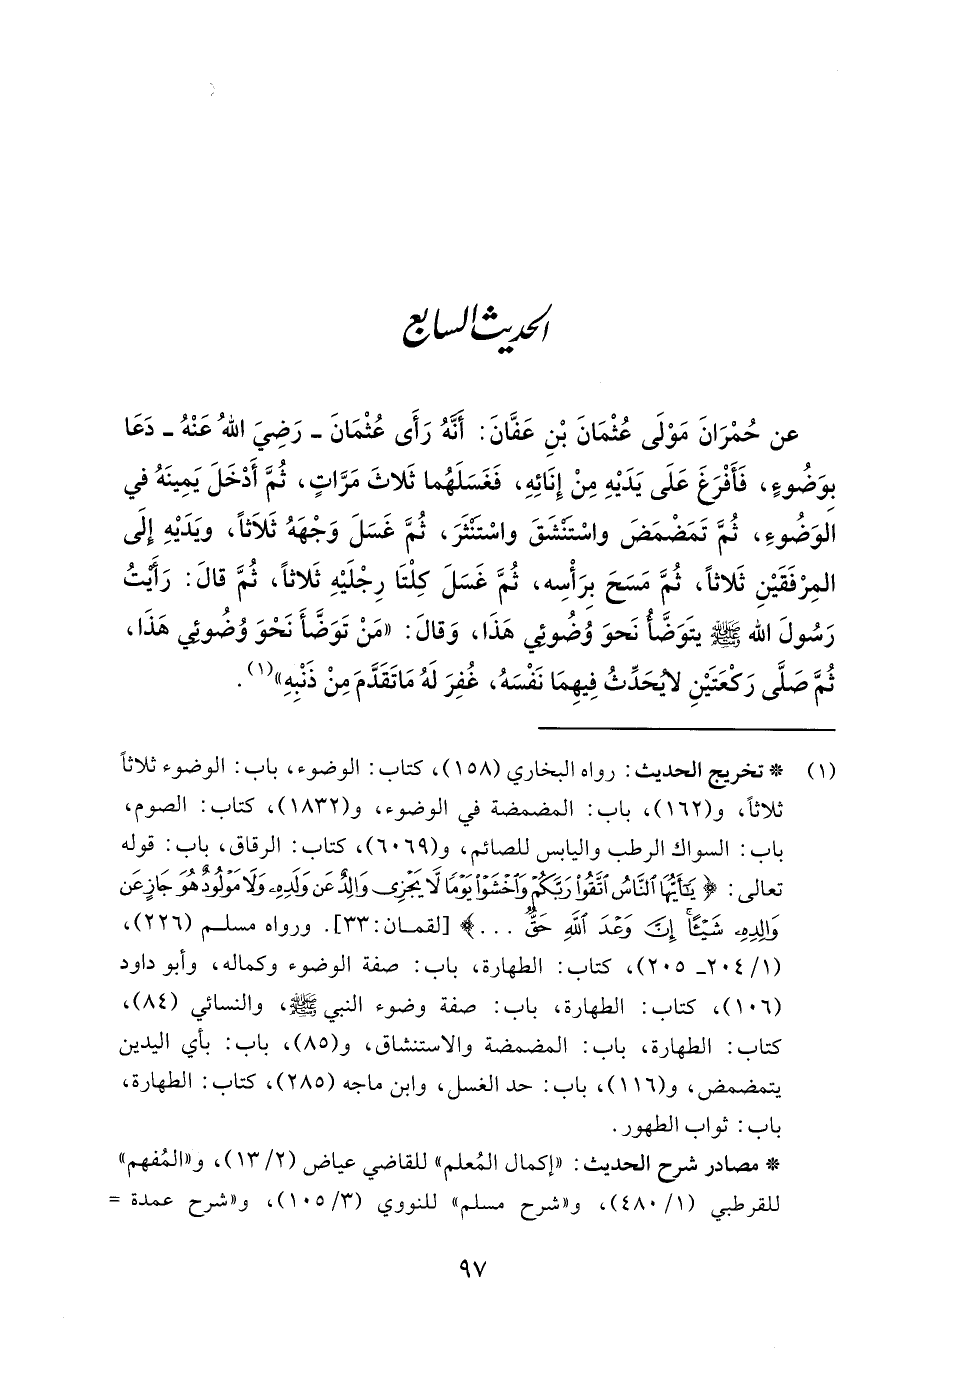 الحديث السابع
عن حُمْرَانَ مَوْلَى عُثْمَانَ بْنِ عَفَّانَ: أَنَّهُ رَأَى عُثْمَانَ ـ رَضِيَ اللهُ عَنْهُ ـ دَعَا
بِوَضُوءٍ، فَأَفْرَغَ عَلَى يَدَيْهِ مِنْ إِنَائِهِ، فَغَسَلَهُما ثَلاثَ مَرَّاتٍ، ثُمَّ أَدْخَلَ يَمِينَهُ في
الوَضُوءِ، ثُمَّ تَمَضْمَضَ واسْتَنْشَقَ واسْتَنْثَرَ، ثُمَّ غَسَلَ وَجْهَهُ ثَلَاثاً، ويَدَيْهِ إِلَى
المِرْفَقَيْنِ ثَلاثاً، ثُمَّ مَسَحَ بِرَأْسِه، ثُمَّ غَسَلَ كِلْتَا رِجْلَيْهِ ثَلاثاً، ثُمَّ قالَ: رَأَيْتُ
رَسُولَ الله ﷺ يتَوَضَّأُ نَحوَ وُضُوئِي هَذَا، وَقالَ: «مَنْ تَوَضَّأَ نَحْوَ وُضُوئِي هَذَا،
ثُمَّ صَلَّى رَكْعَتَيْنِ لايُحَدِّثُ فِيهِمَا نَفْسَهُ، غُفِرَ لَهُ مَاتَقَدَّمَ مِنْ ذَنْبِهِ»(١).
(١) * تخريج الحديث: رواه البخاري (١٥٨)، كتاب: الوضوء، باب: الوضوء ثلاثاً
ثلاثاً، و(١٦٢)، باب: المضمضة في الوضوء، و(١٨٣٢)، كتاب: الصوم،
باب: السواك الرطب واليابس للصائم، و(٦٠٦٩)، كتاب: الرقاق، باب: قوله
تعالى: ﴿يَٰٓأَيُّهَا ٱلنَّاسُ ٱتَّقُوا۟ رَبَّكُمْ وَٱخْشَوْا۟ يَوْمًا لَّا يَجْزِى وَالِدٌ عَن وَلَدِهِۦ وَلَا مَوْلُودٌ هُوَ جَازٍ عَن
وَالِدِهِۦ شَيْـًٔا إِنَّ وَعْدَ ٱللَّهِ حَقٌّ ...﴾ [لقمان: ٣٣]. ورواه مسلم (٢٢٦)،
(١/ ٢٠٤ـ ٢٠٥)، كتاب: الطهارة، باب: صفة الوضوء وكماله، وأبو داود
(١٠٦)، كتاب: الطهارة، باب: صفة وضوء النبي ﷺ، والنسائي (٨٤)،
كتاب: الطهارة، باب: المضمضة والاستنشاق، و(٨٥)، باب: بأي اليدين
يتمضمض، و(١١٦)، باب: حد الغسل، وابن ماجه (٢٨٥)، كتاب: الطهارة،
باب: ثواب الطهور.
* مصادر شرح الحديث: «إكمال المُعلم» للقاضي عياض (٢/ ١٣)، و«المُفهم»
للقرطبي (١/ ٤٨٠)، و«شرح مسلم» للنووي (٣/ ١٠٥)، و«شرح عمدة =
٩٧